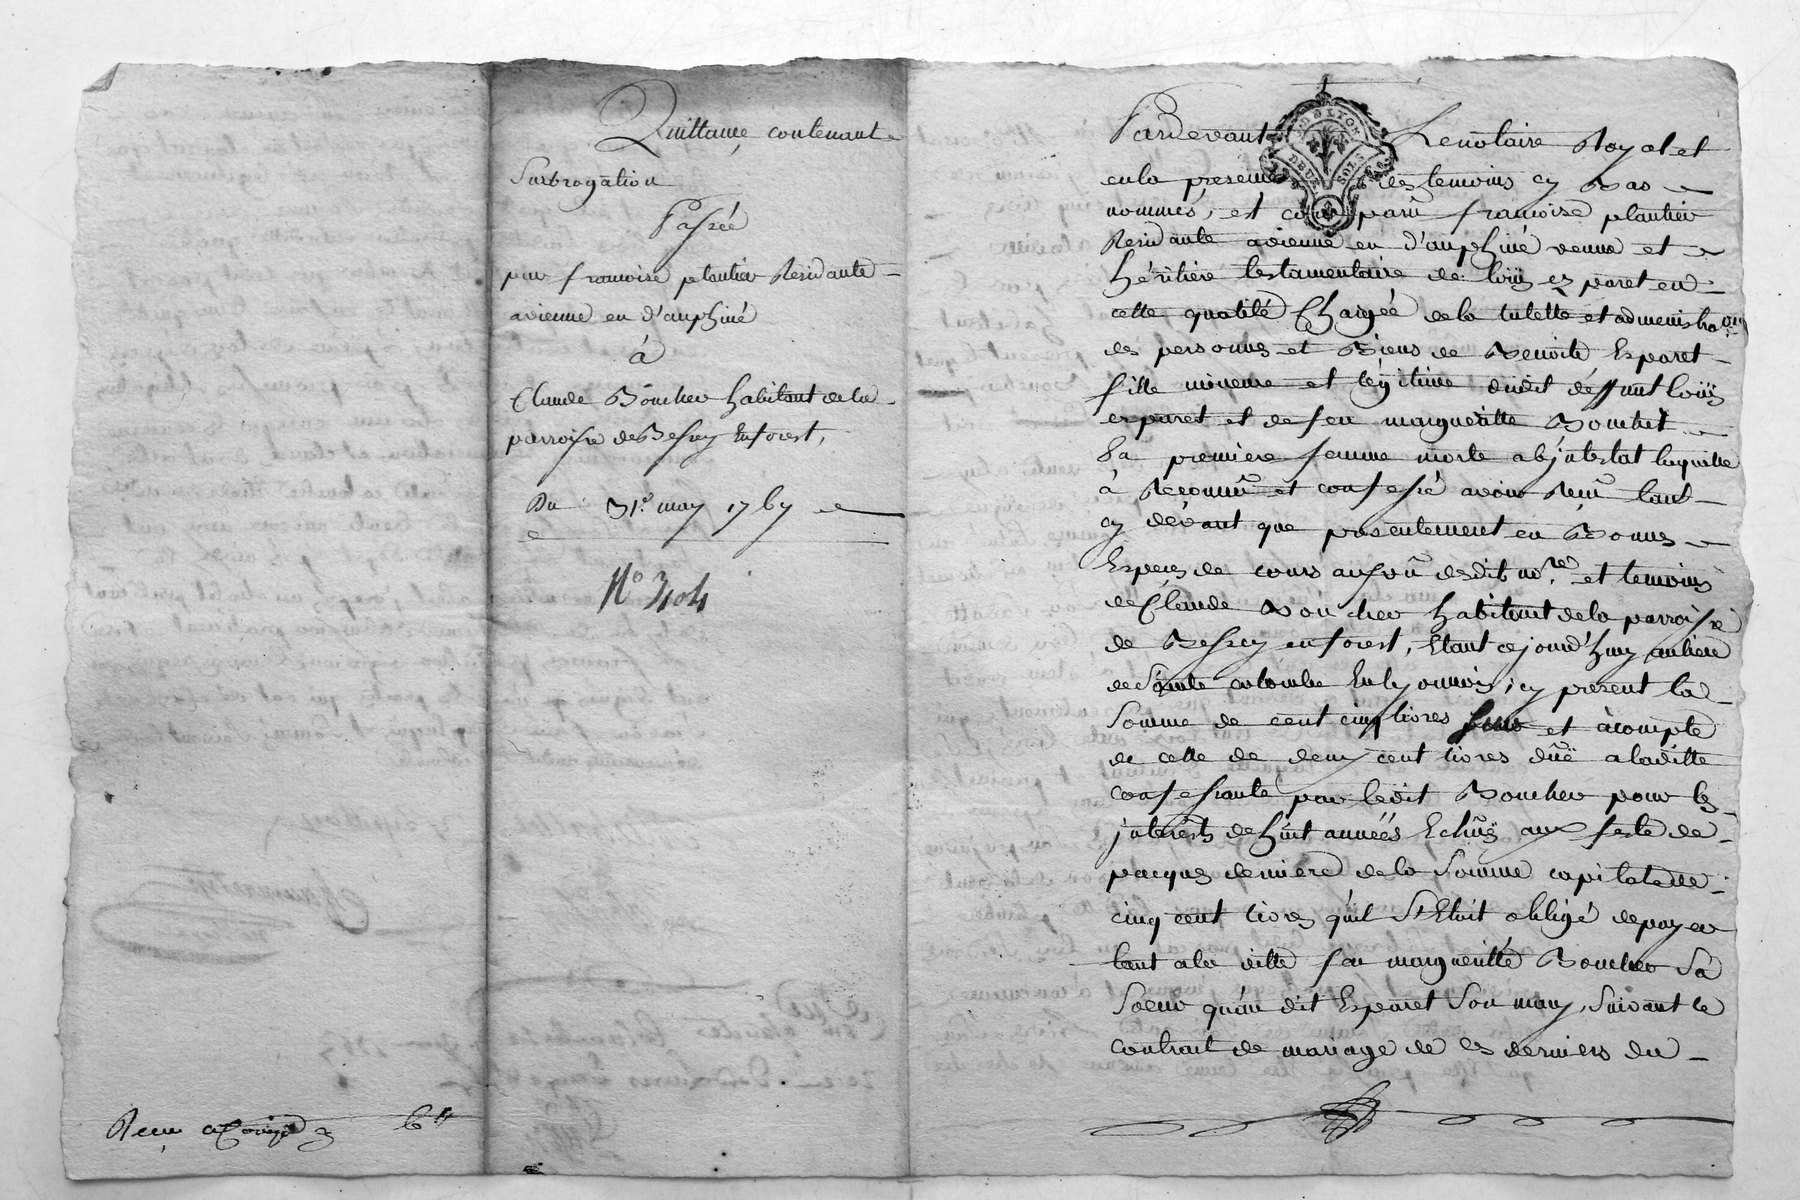 Quittance contenant
Surbrogation
Passée
par francoise plantier Residante
a vienne en d'auphiné
à
Claude Boucher habitant de la
parroisse de Bessey En forest,
Du 31.e may 1767
N.o 304
Recu a Compte 6 tt
G. DE LYON
DEUX SOLS
Pardevant Le notaire Royal et
en la presence des temoins cy Bas
nommés, est comparu francoise plantier
Residante a vienne en d'auphiné veuve et
héritiere testamentaire de loüis esparet en
cette qualité Chargée de la tutelle et administraõn
des personnes et Biens de Benoite Esparet
fille mineure et légitime dudit déffunt loüis
esparet et de feu margueritte Bouchet
Sa premiere femme morte abjntestat laquelle
à Reconnu et confessé avoir Recu tant
cy devant que presentement en Bonnes
Especes de cours au su desdits no.re et temoins
de Claude Boucher habitant de la parroisse
de Bessey en forest, Etant cejourd'huy au lieu
de Sainte colombe En lyonnois, cy present la
Somme de cent cinq livres et àcompte
de celle de deux cent livres düe a laditte
confessante par ledit Boucher pour les
jnterests de huit années Echus aux feste de
pacques derniere de la Somme capitale de
cinq cent livres qu'il S'Etoit obligé de payer
tant a la ditte feu margueritte Boucher Sa
Soeur qu'au dit Esparet Son mary, Suivant le
contrait de mariage de ces derniers du